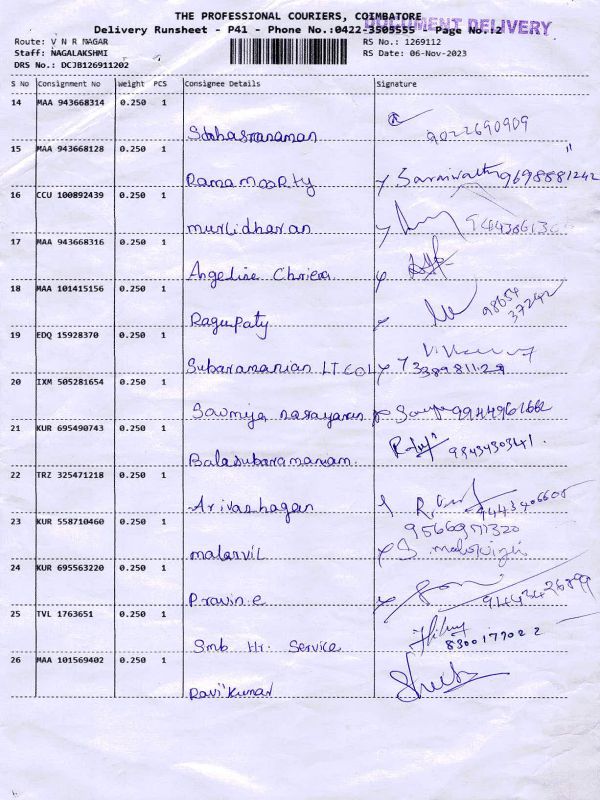 THE PROFESSIONAL COURIERS, COIMBATORE
DOCUMENT DELIVERY
Delivery Runsheet - P41 - Phone No.:0422-3505555 - Page No.:2
Route: V N R NAGAR RS No.: 1269112
Staff: NAGALAKSHMI RS Date: 06-Nov-2023
DRS No.: DCJB126911202
S No Consignment No Weight PCS Consignee Details Signature
14 MAA 943668314 0.250 1
9022690909
15 MAA 943668128 0.250 1
Ramamoorty 9698881242
16 CCU 100892439 0.250 1
murlidharan
17 MAA 943668316 0.250 1
Angeline
18 MAA 101415156 0.250 1
Ragupaty 98654 37242
19 EDQ 15928370 0.250 1
Subaramanian LT COL 7338981129
20 IXM 505281654 0.250 1
Sowmiya narayanan 9944961662
21 KUR 695490743 0.250 1
Balasubaramaniam 9843430341
22 TRZ 325471218 0.250 1
Arivazhagan
23 KUR 558710460 0.250 1 9566971320
malarvil
24 KUR 695563220 0.250 1
Pravin.e 94443426899
25 TVL 1763651 0.250 1
Smb Hr. Service 8300177022
26 MAA 101569402 0.250 1
Ravikumar